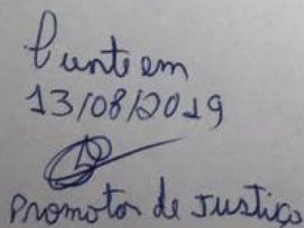 em
13/08/2019
Promotor de Justiça